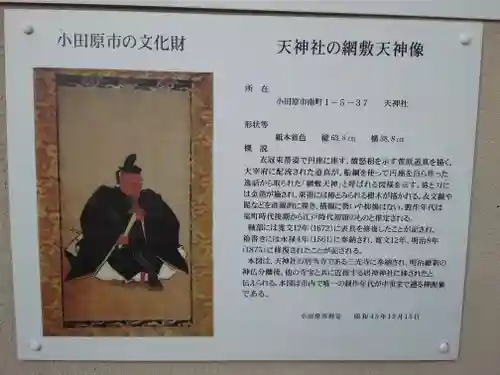 小田原市の文化財
天神社の綱敷天神像
所 在
小田原市南町1-5-37 天神社
形状等
紙本着色 縦63.8㎝ 横38.8㎝
概 説
衣冠束帯姿で円座に座す、憤怒相を示す菅原道真を描く。
大宰府に配流された道真が、船綱を使って円座を自ら作った
逸話から取られた「綱敷天神」と呼ばれる図様を示す。
には金箔が施され、束帯には梅とみられる樹木が描かれる。
製作年代は
室町時代後期から江戸時代初頭のものと推定される。
軸部には寛文12年(1672)に表具を修復したことが記され、
箱書きには永禄4年(1561)に奉納され、寛文12年、明治8年
(1875)に修復されたことが記される。
本図は、天神社の別当寺である三光寺に奉納され、明治維新の
神仏分離後、他の寺宝と共に直接する居神神社に移されたと
伝えられる。本図は市内で唯一の制作年代が中世まで遡る
である。
小田原市教委